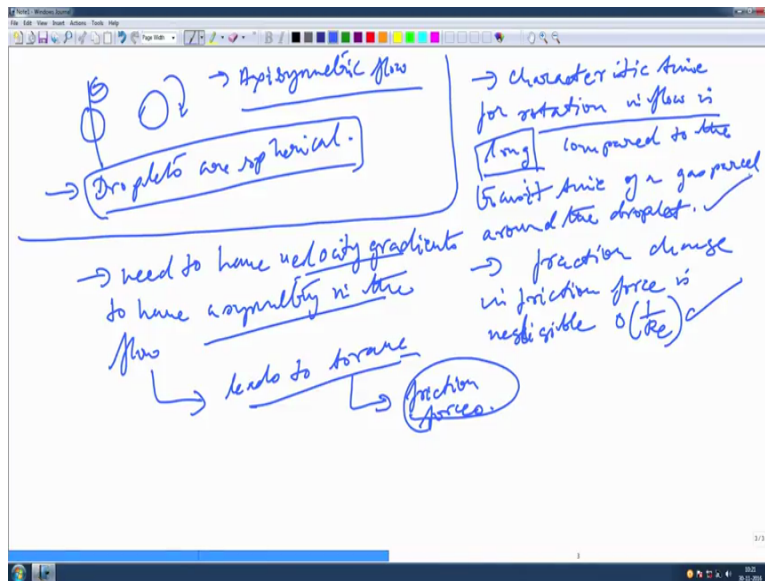 Note1 - Windows Journal
File Edit View Insert Actions Tools Help
Page Width
→ Axisymmetric flow
→ Droplets are spherical.
→ need to have velocity gradients
to have asymmetry in the
flow
leads to torque
friction
forces.
→ characteristic time
for rotation in flow is
long compared to the
transit time of a gas parcel
around the droplet.
→ fraction change
in friction force is
negligible O(1/Re)
3/3
3
10:21
30-11-2016